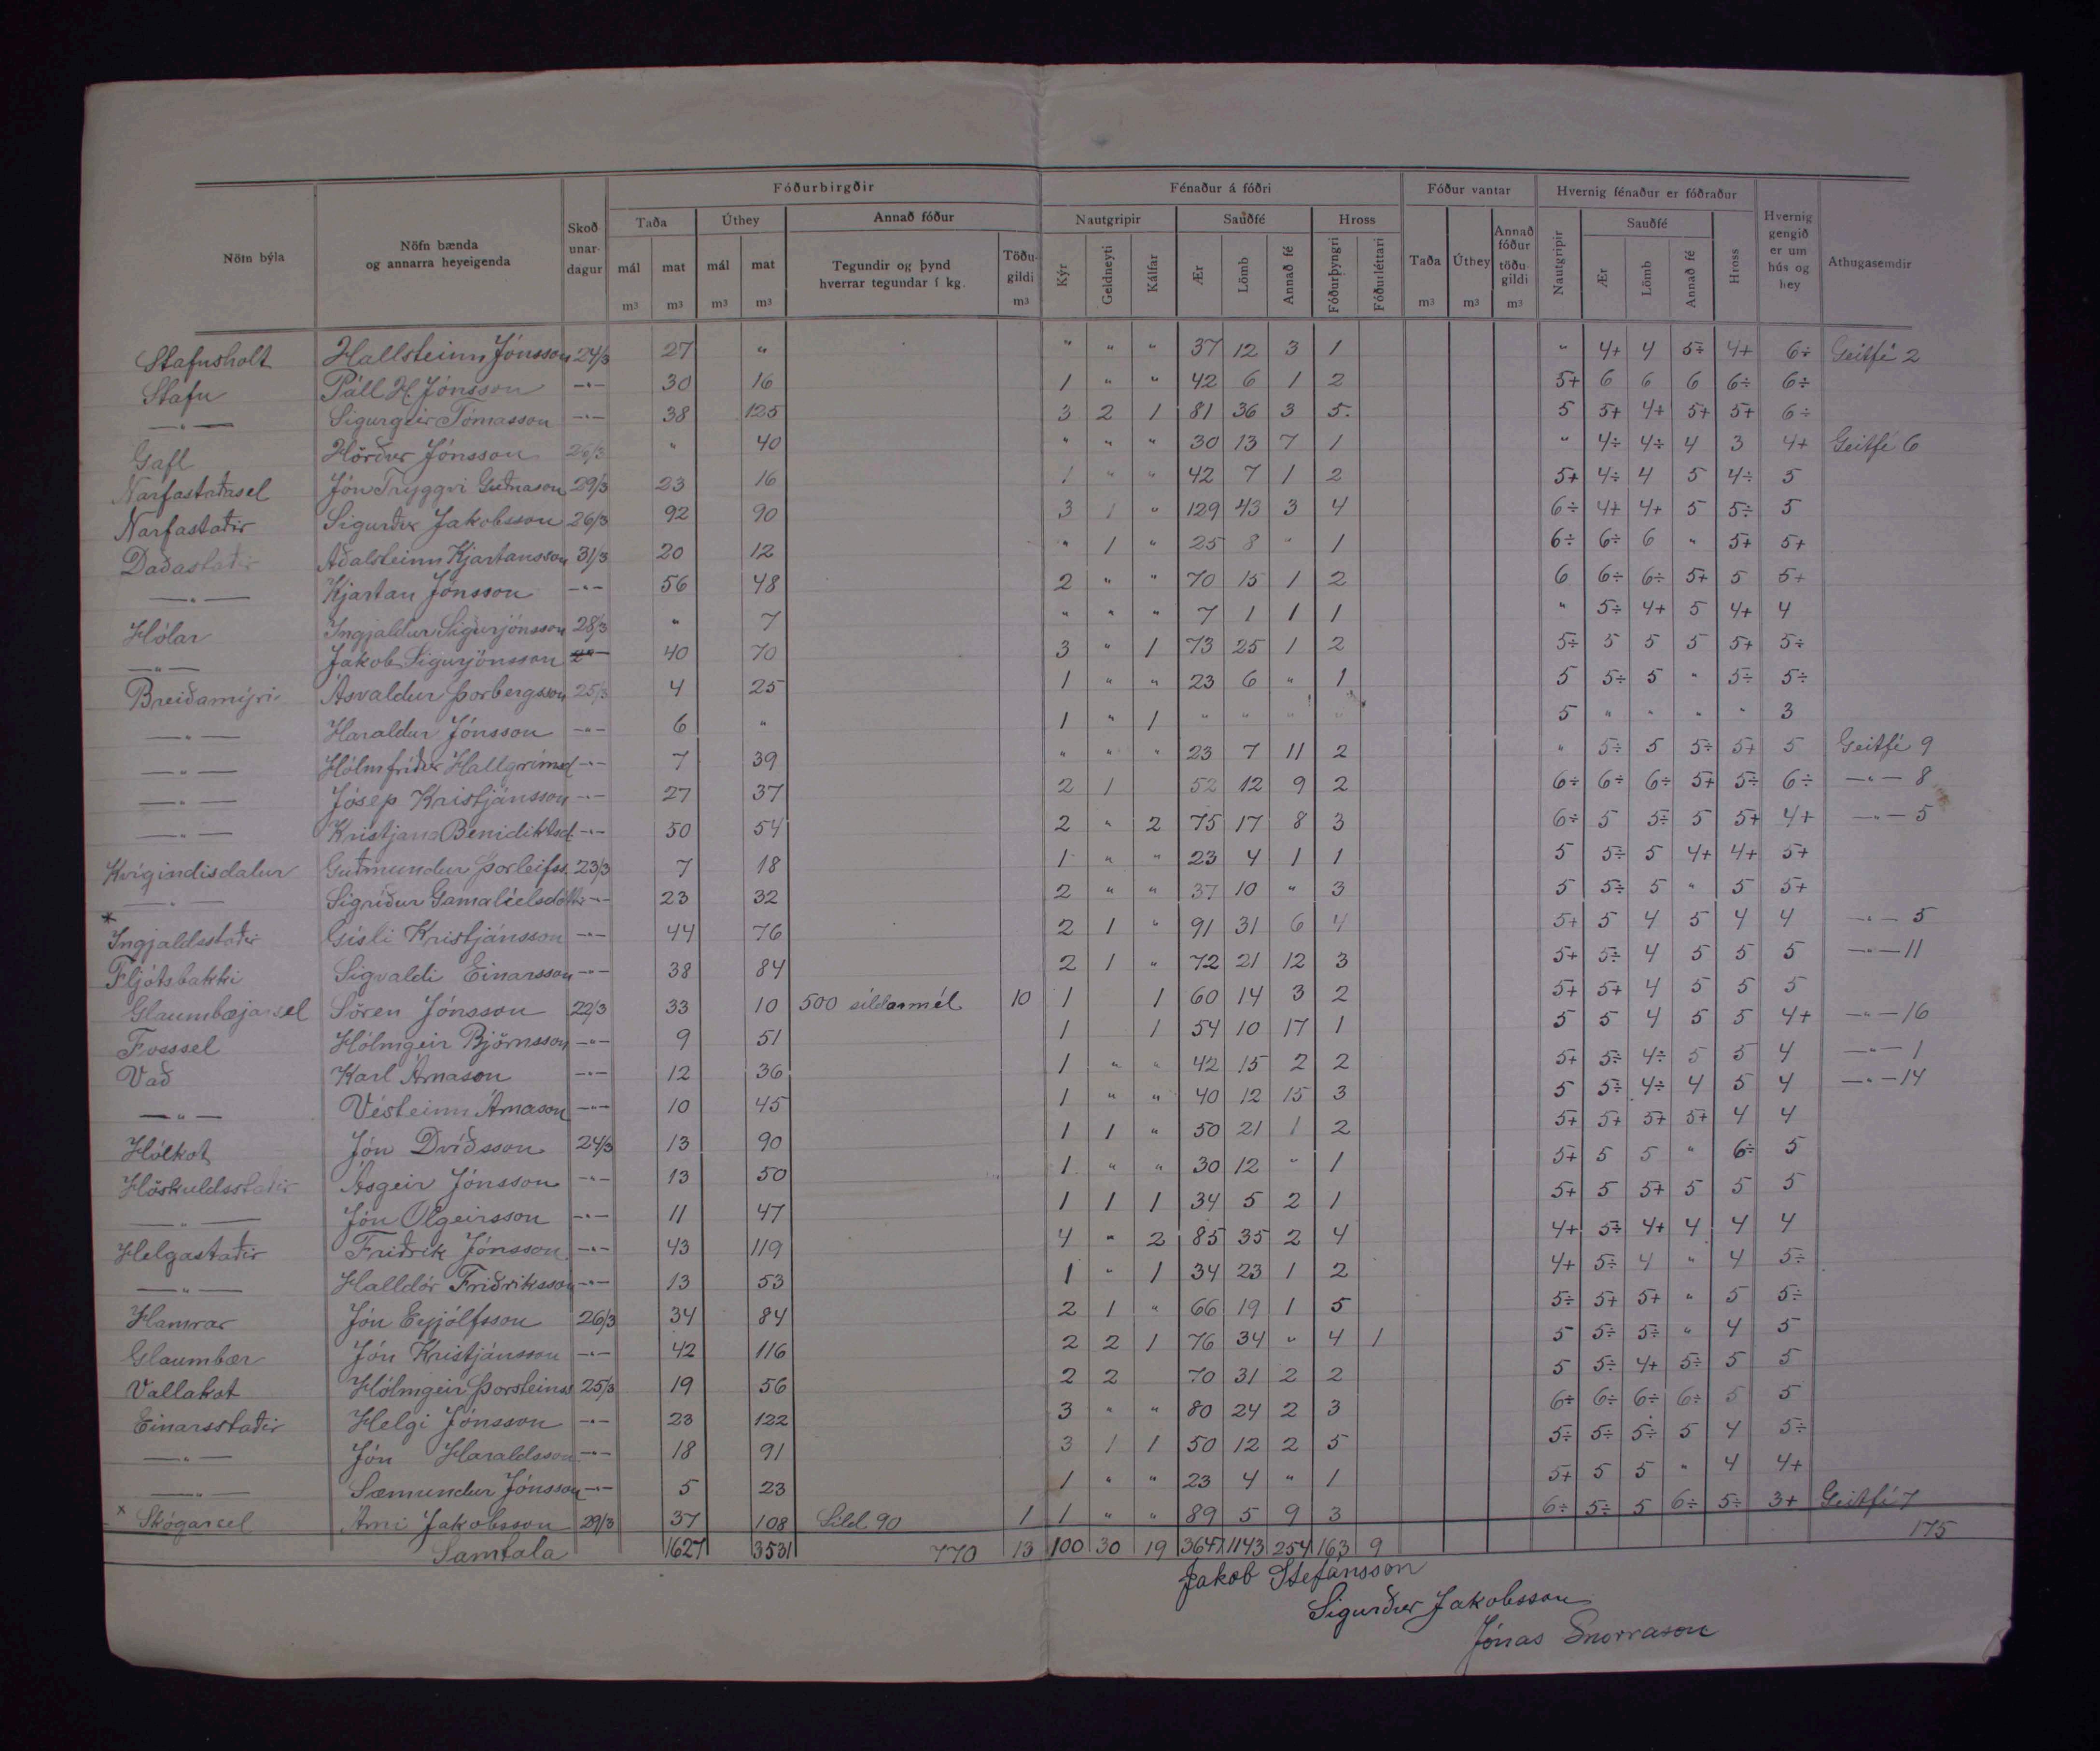 Nöfn býla | Nöfn bænda og annarra heyeigenda | Skoðunardagur | Fóðurbirgðir | Fénaður á fóðri | Fóður vantar | Hvernig fénaður er fóðraður | Hvernig gengið er um hús og hey | Athugasemdir
Taða | Úthey | Annað fóður | Nautgripir | Sauðfé | Hross | Taða | Úthey | Annað fóður töðugildi | Nautgripir | Sauðfé | Hross
mál | mat | mál | mat | Tegundir og þynd hverrar tegundar í kg. | Töðugildi | Kýr | Geldneyti | Kálfar | Ær | Lömb | Annað fé | Fóðurþyngri | Fóðurléttari | Ær | Lömb | Annað fé
m³ m³ m³ m³ m³ m³ m³ m³
Stafnsholt Hallsteinn Jónsson 24/3 27 " " " " 37 12 3 1 " 4+ 4 5÷ 4+ 6÷ Geitfé 2
Stafn Páll H. Jónsson -"- 30 16 1 " " 42 6 1 2 5+ 6 6 6 6÷ 6÷
-"- Sigurgeir Tómasson -"- 38 125 3 2 1 81 36 3 5. 5 5+ 4+ 5+ 5+ 6÷
Gafl Hörður Jónsson 26/3 " 40 " " " 30 13 7 1 " 4÷ 4÷ 4 3 4+ Geitfé 6
Narfastaðasel Jón Tryggvi Guðnason 29/3 23 16 1 " " 42 7 1 2 5+ 4÷ 4 5 4÷ 5
Narfastaðir Sigurður Jakobsson 26/3 92 90 3 1 " 129 43 3 4 6÷ 4+ 4+ 5 5÷ 5
Daðastaðir Aðalsteinn Kjartansson 31/3 20 12 " 1 " 25 8 " 1 6÷ 6÷ 6 " 5+ 5+
-"- Kjartan Jónsson -"- 56 48 2 " " 70 15 1 2 6 6÷ 6÷ 5+ 5 5+
Hólar Ingjaldur Sigurjónsson 28/3 " 7 " " " 7 1 1 1 " 5÷ 4+ 5 4+ 4
-"- Jakob Sigurjónsson -"- 40 70 3 " 1 73 25 1 2 5÷ 5 5 5 5+ 5÷
Breiðamýri Ásvaldur Þorbergsson 25/3 4 25 1 " " 23 6 " 1 5 5÷ 5 " 5÷ 5÷
-"- Haraldur Jónsson -"- 6 " 1 " 1 " " " " 5 " " " " 3
-"- Hólmfríður Hallgrímsd. -"- 7 39 " " " 23 7 11 2 " 5÷ 5 5÷ 5+ 5 Geitfé 9
-"- Jósep Kristjánsson -"- 27 37 2 1 52 12 9 2 6÷ 6÷ 6÷ 5+ 5÷ 6÷ -"- 8
-"- Kristjana Benidiktsd. -"- 50 54 2 " 2 75 17 8 3 6÷ 5 5÷ 5 5+ 4+ -"- 5
Kvígindisdalur Guðmundur Þorleifss. 23/3 7 18 1 " " 23 4 1 1 5 5÷ 5 4+ 4+ 5+
-"- Sigríður Gamalíelsdóttir -"- 23 32 2 " " 37 10 " 3 5 5÷ 5 " 5 5+
* Ingjaldsstaðir Gísli Kristjánsson -"- 44 76 2 1 " 91 31 6 4 5+ 5 4 5 4 4 -"- 5
Fljótsbakki Sigvaldi Einarsson -"- 38 84 2 1 " 72 21 12 3 5+ 5÷ 4 5 5 5 -"- 11
Glaumbæjarsel Sören Jónsson 22/3 33 10 500 síldarmél 10 1 1 60 14 3 2 5+ 5+ 4 5 5 5
Fosssel Hólmgeir Björnsson -"- 9 51 1 1 54 10 17 1 5 5 4 5 5 4+ -"- 16
Vað Karl Árnason -"- 12 36 1 " " 42 15 2 2 5+ 5÷ 4÷ 5 5 4 -"- 1
-"- Vésteinn Árnason -"- 10 45 1 " " 40 12 15 3 5 5÷ 4÷ 4 5 4 -"- 14
Hólkot Jón Dvíðsson 24/3 13 90 1 1 " 50 21 1 2 5+ 5+ 5+ 5+ 4 4
Höskuldsstaðir Ásgeir Jónsson -"- 13 50 1 " " 30 12 " 1 5+ 5 5 " 6÷ 5
-"- Jón Olgeirsson -"- 11 47 1 1 1 34 5 2 1 5+ 5 5+ 5 5 5
Helgastaðir Friðrik Jónsson -"- 43 119 4 " 2 85 35 2 4 4+ 5÷ 4+ 4 4 4
-"- Halldór Friðriksson -"- 13 53 1 " 1 34 23 1 2 4+ 5÷ 4 " 4 5÷
Hamrar Jón Eyjólfsson 26/3 34 84 2 1 " 66 19 1 5 5÷ 5+ 5+ " 5 5÷
Glaumbær Jón Kristjánsson -"- 42 116 2 2 1 76 34 " 4 1 5 5÷ 5÷ " 4 5
Vallakot Hólmgeir Þorsteinss 25/3 19 56 2 2 70 31 2 2 5 5÷ 4+ 5÷ 5 5
Einarsstaðir Helgi Jónsson -"- 23 122 3 " " 80 24 2 3 6÷ 6÷ 6÷ 6÷ 5 5
-"- Jón Haraldsson -"- 18 91 3 1 1 50 12 2 5 5÷ 5÷ 5÷ 5 4 5÷
-"- Sæmundur Jónsson -"- 5 23 1 " " 23 4 " 1 5+ 5 5 " 4 4+
x Skógarsel Árni Jakobsson 29/3 37 108 Síld 90 1 1 " " 89 5 9 3 6÷ 5÷ 5 6÷ 5÷ 3+ Geitfé 7
Samtala 1627 3531 770 13 100 30 19 3647 1143 254 163 9 175
Jakob Stefánsson
Sigurður Jakobsson
Jónas Snorrason